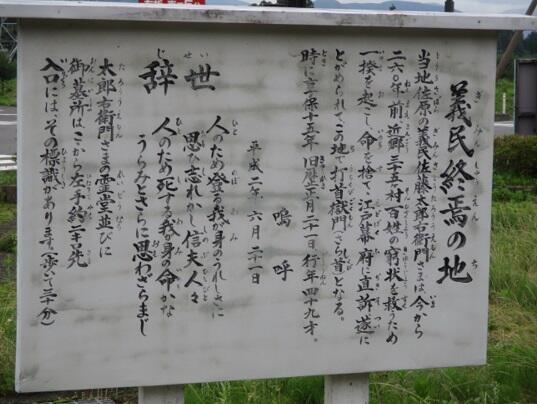 義民終焉の地
当地佐原の義民佐藤太郎右衛門さまは、今から
二六〇年前近郷三五ヵ村百姓の窮状を救うため
一揆を起し、命を捨て、江戸幕府に直訴遂に
とがめられて、この地で打首獄門さらし首となる。
時に享保十五年旧歴正月二十一日、行年四十九才。
嗚呼
平成二年六月二十一日
辞世
人のため登る我が身のうれしさに
思ひ忘れかし信夫人々
人のため死する我身の命かな
うらみとさらに思わざらまじ
太郎右衛門さまの霊堂並びに
御墓所はここから左手約二キロ先
入口には、その標識があります。(歩いて三十分)